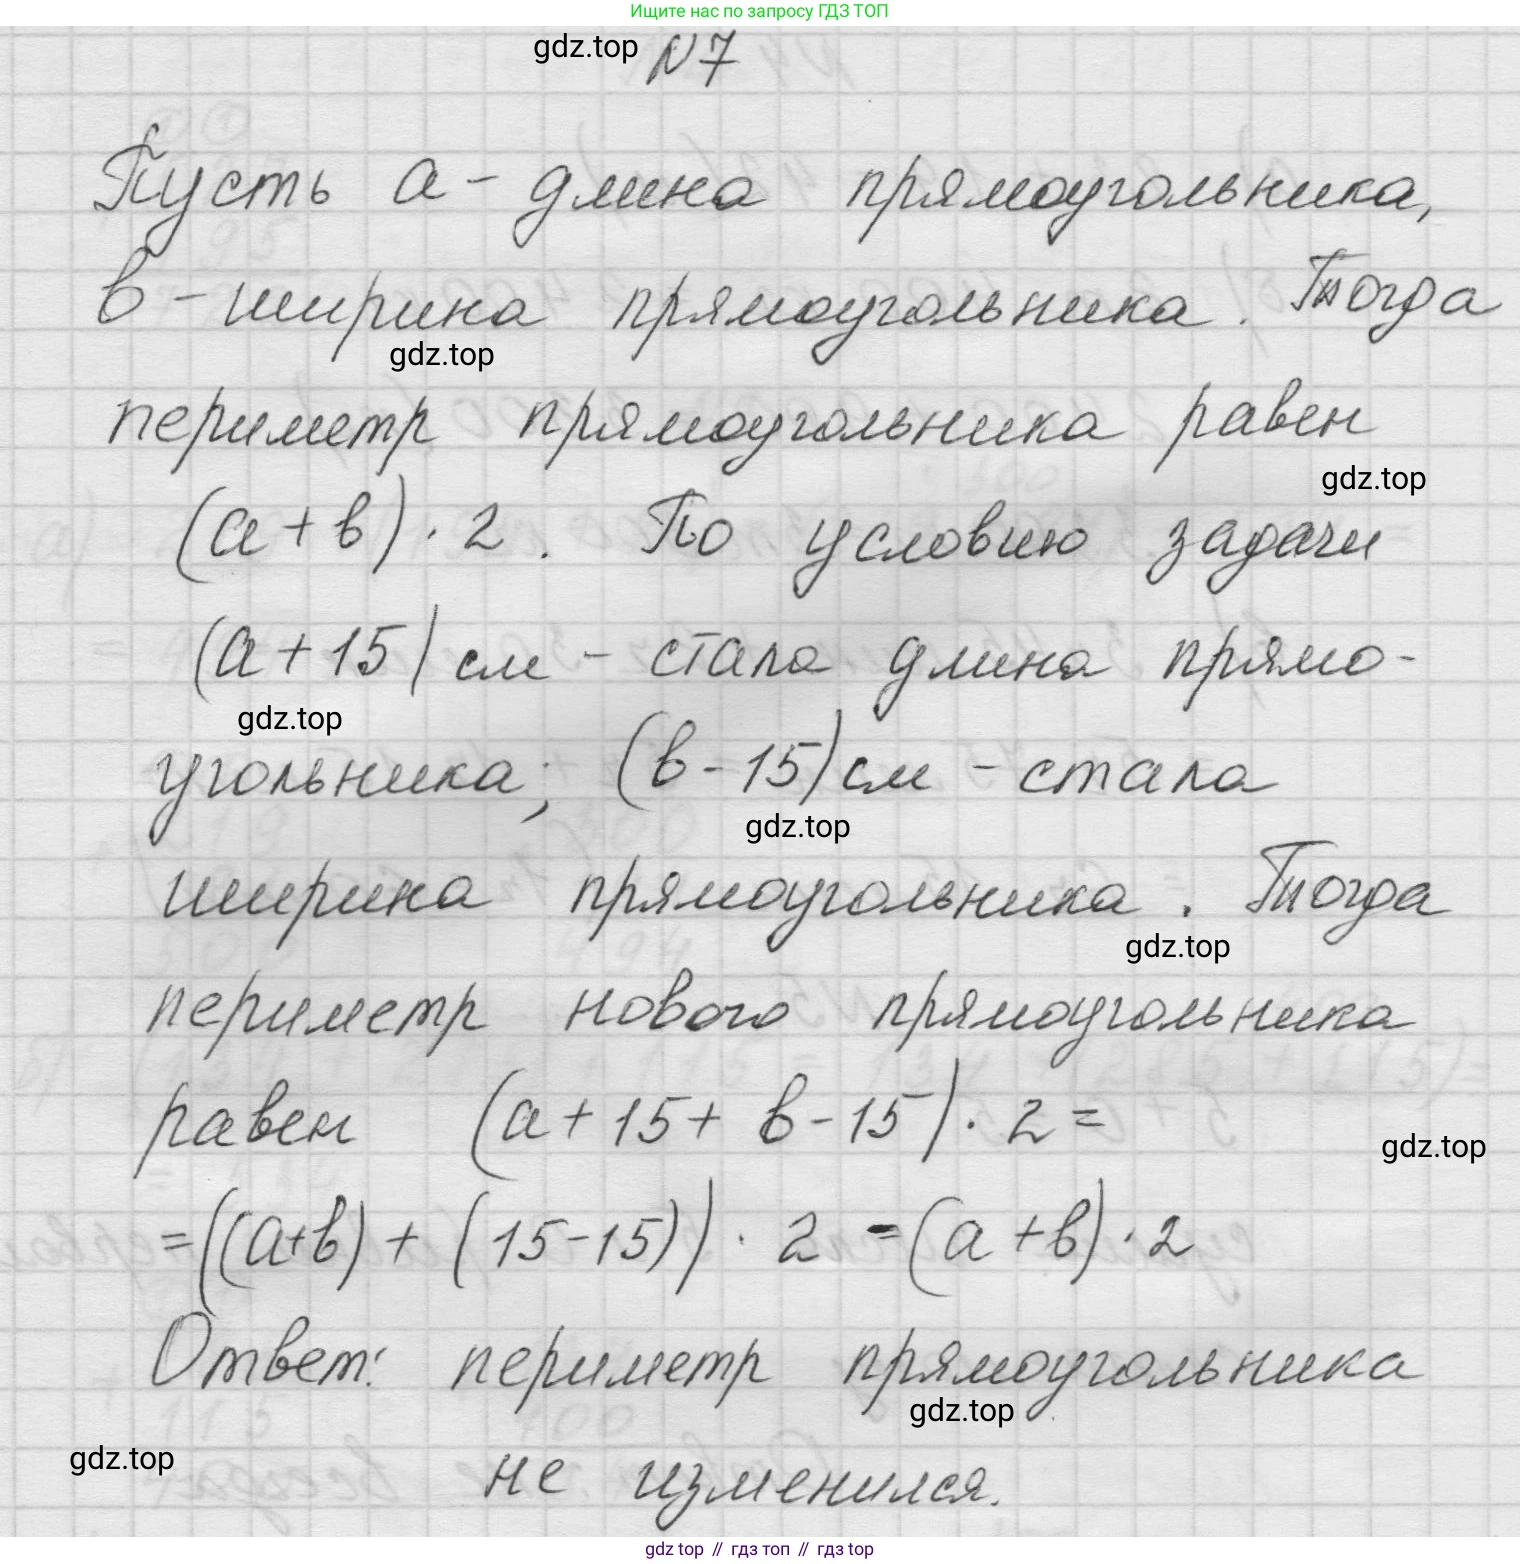 Ищите нас по запросу ГДЗ ТОП
gdz.top №7
Пусть а - длина прямоугольника,
в - ширина прямоугольника. Тогда
gdz.top
периметр прямоугольника равен
gdz.top
(а + в) · 2. По условию задачи
(а + 15) см - стала длина прямо-
gdz.top
угольника; (в - 15) см - стала
gdz.top
ширина прямоугольника. Тогда
gdz.top
периметр нового прямоугольника
равен (а + 15 + в - 15) · 2 =
gdz.top
= ((а+в) + (15-15)) · 2 = (а + в) · 2
Ответ: периметр прямоугольника
gdz.top
gdz.top
не изменился.
gdz top // гдз топ // гдз top